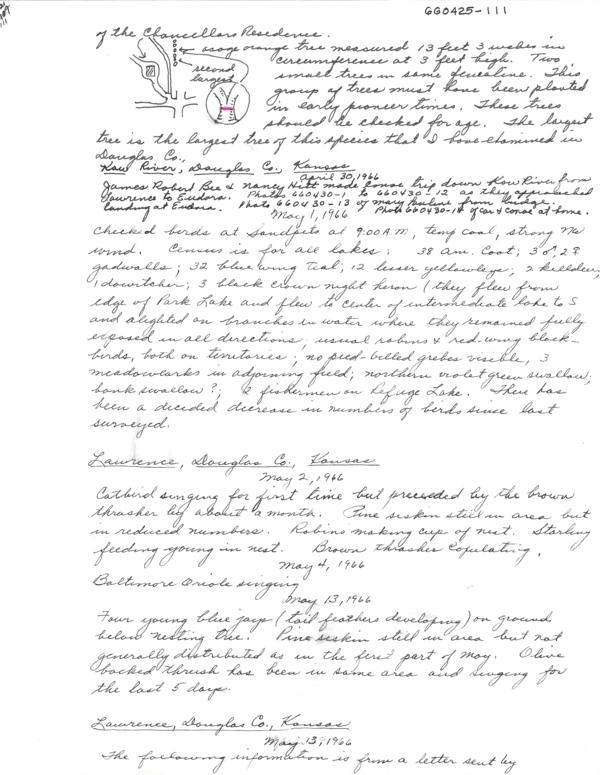 660425-111
of the Chancellors Residence.
osage orange tree measured 13 feet 3 inches in
circumference at 3 feet high. Two
second
largest
small trees in same fenceline. This
group of trees must have been planted
in early pioneer times. These trees
should be checked for age. The largest
tree is the largest tree of this species that I have examined in
Douglas Co.,
Kaw River, Douglas Co., Kansas
April 30, 1966
James Robert Bee & Nancy Hitt made canoe trip down Kaw River from
Lawrence to Eudora. Photos 660430-1 to 660430-12 as they approached
landing at Eudora. Photo 660430-13 of Mary Pauline from bridge.
Photo 660430-14 of car & canoe at home.
May 1, 1966
Checked birds at Sandpits at 9:00 A.M., temp cool, strong NW
wind. Census is for all lakes: 38 Am. Coot; 3♂, 2♀
gadwalls; 32 blue wing teal; 12 lesser yellowlegs; 2 killdeer;
1 dowitcher; 3 black crown night heron (they flew from
edge of Park Lake and flew to center of intermediate lake to S
and alighted on branches in water where they remained fully
exposed in all directions; usual robins & red-wing black-
birds, both on territories; no pied-billed grebes visible, 3
meadowlarks in adjoining field; northern violet green swallow;
bank swallow?; 2 fishermen on Refuge Lake. There has
been a decided decrease in numbers of birds since last
surveyed.
Lawrence, Douglas Co., Kansas
May 2, 1966
Catbird singing for first time but preceeded by the brown
thrasher by about a month. Pine siskin still in area but
in reduced numbers. Robins making cup of nest. Starling
feeding young in nest. Brown thrasher copulating.
May 4, 1966
Baltimore Oriole singing
May 13, 1966
Four young blue jays (tail feathers developing) on ground
below nesting tree. Pine siskin still in area but not
generally distributed as in the first part of May. Olive
backed thrush has been in same area and singing for
the last 5 days.
Lawrence, Douglas Co., Kansas
May 13, 1966
The following information is from a letter sent by